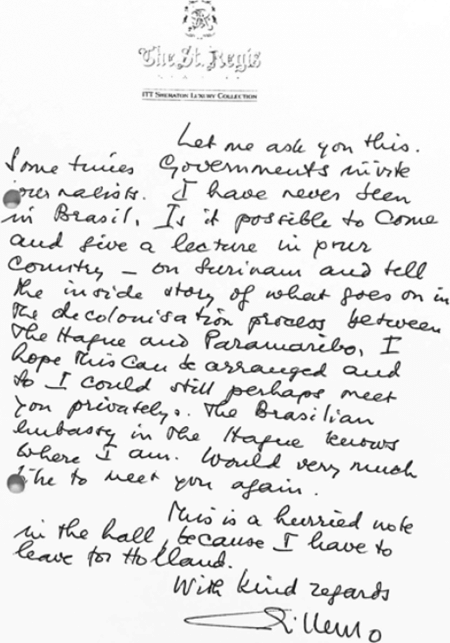 The St. Regis
ITT Sheraton Luxury Collection
Let me ask you this.
Some times Governments invite
journalists. I have never been
in Brasil. Is it possible to come
and give a lecture in your
country – on Surinam and tell
the inside story of what goes on in
the decolonisation process between
The Hague and Paramaribo. I
hope this can be arranged and
so I could still perhaps meet
you privately. The Brasilian
embassy in The Hague knows
where I am. Would very much
like to meet you again.
This is a hurried note
in the hall, because I have to
leave for Holland.
With kind regards